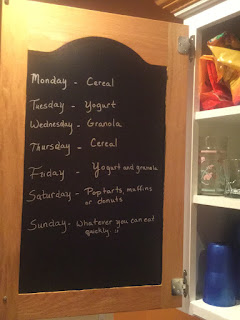 Monday - Cereal
Tuesday - Yogurt
Wednesday - Granola
Thursday - Cereal
Friday - Yogurt and granola
Saturday - Poptarts, muffins
or donuts
Sunday - Whatever you can eat
quickly. :)